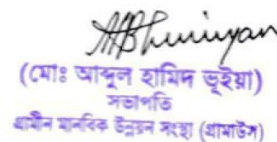 (মোঃ আব্দুল হামিদ ভূইয়া)
সভাপতি
গ্রামীন মানবিক উন্নয়ন সংস্থা (গ্রামাউস)